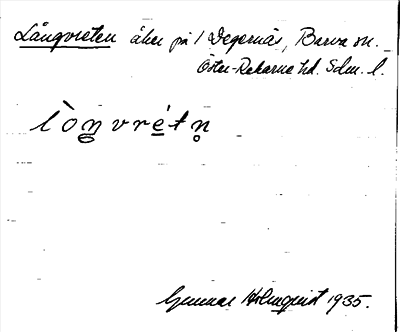 Långvreten åker på 1 Degernäs, Barva sn.
Öster-Rekarne hd. Sdm. l.
lòŋvrétn̥
Gunnar Holmquist 1935.